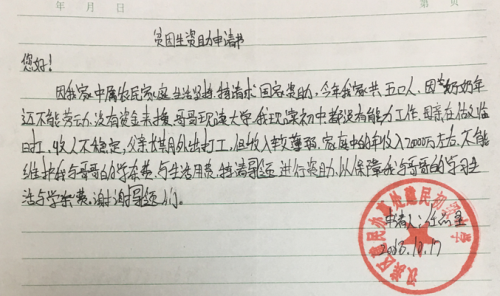 年 月 日 第 页
贫困生资助申请书
您好!
因我家中属农民家庭生活困难特请求国家资助,今年我家共五口人,因爷奶奶年
迈不能劳动,没有资金来源,哥哥现读大学,我现读初中都没有能力工作,母亲在做临
时打工,收入不稳定,父亲长期外出打工,但收入较薄弱,家庭中的年收入2000万左右,不能
维护我与哥哥的学杂费,与生活用费,特请导还进行资助,以保障我与哥哥的学习生
活与学杂费,谢谢导还们。
申请人:任
2016.10.17
区惠民办事处建民初级中学